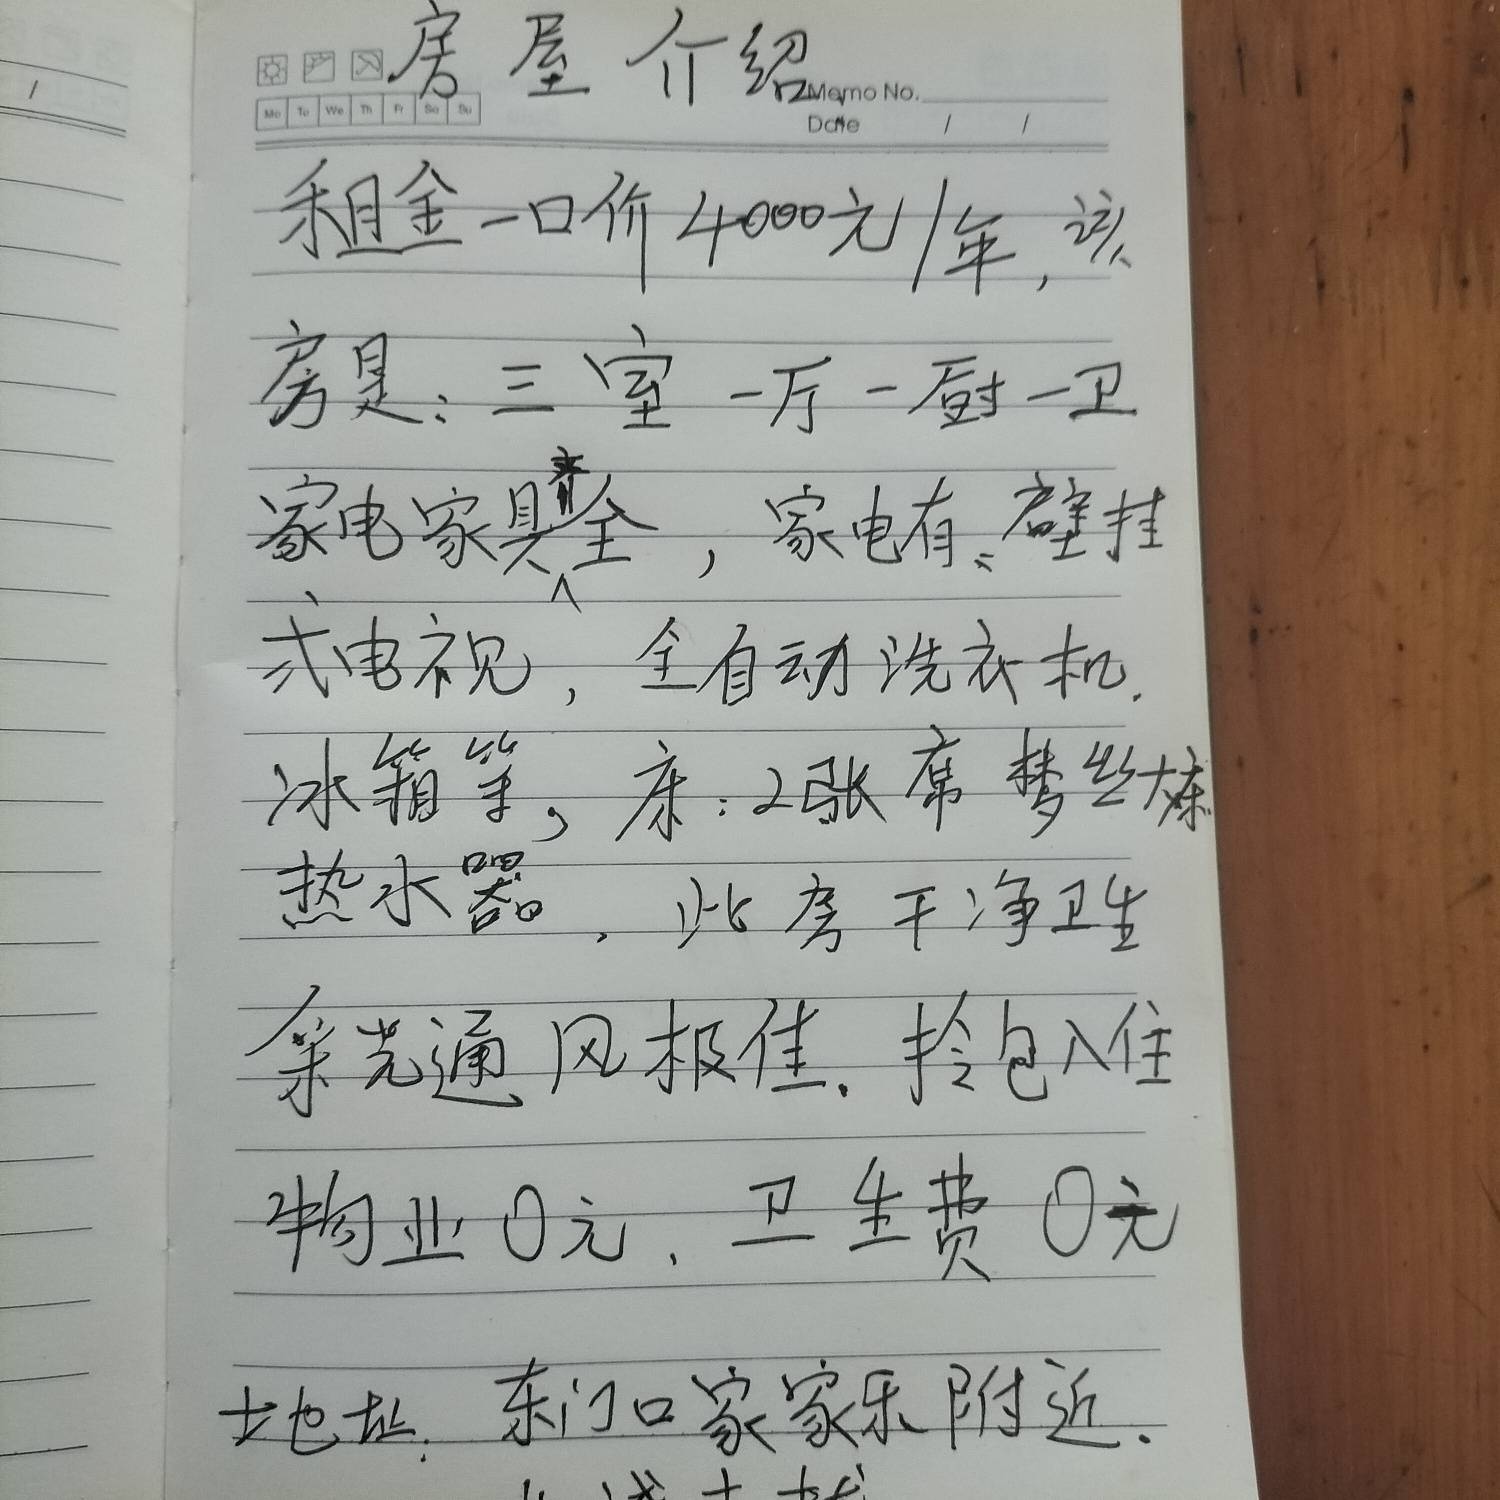 房屋介绍
Memo No.
Mo Tu We Th Fr Sa Su
Date / /
租金一口价4000元/年,该
房是:三室一厅一厨一卫
家电家具齐全,家电有:壁挂
式电视,全自动洗衣机.
冰箱等,床:2张席梦丝大床
热水器,此房干净卫生
采光通风极佳.拎包入住
物业0元.卫生费0元
地址.东门口家家乐附近.